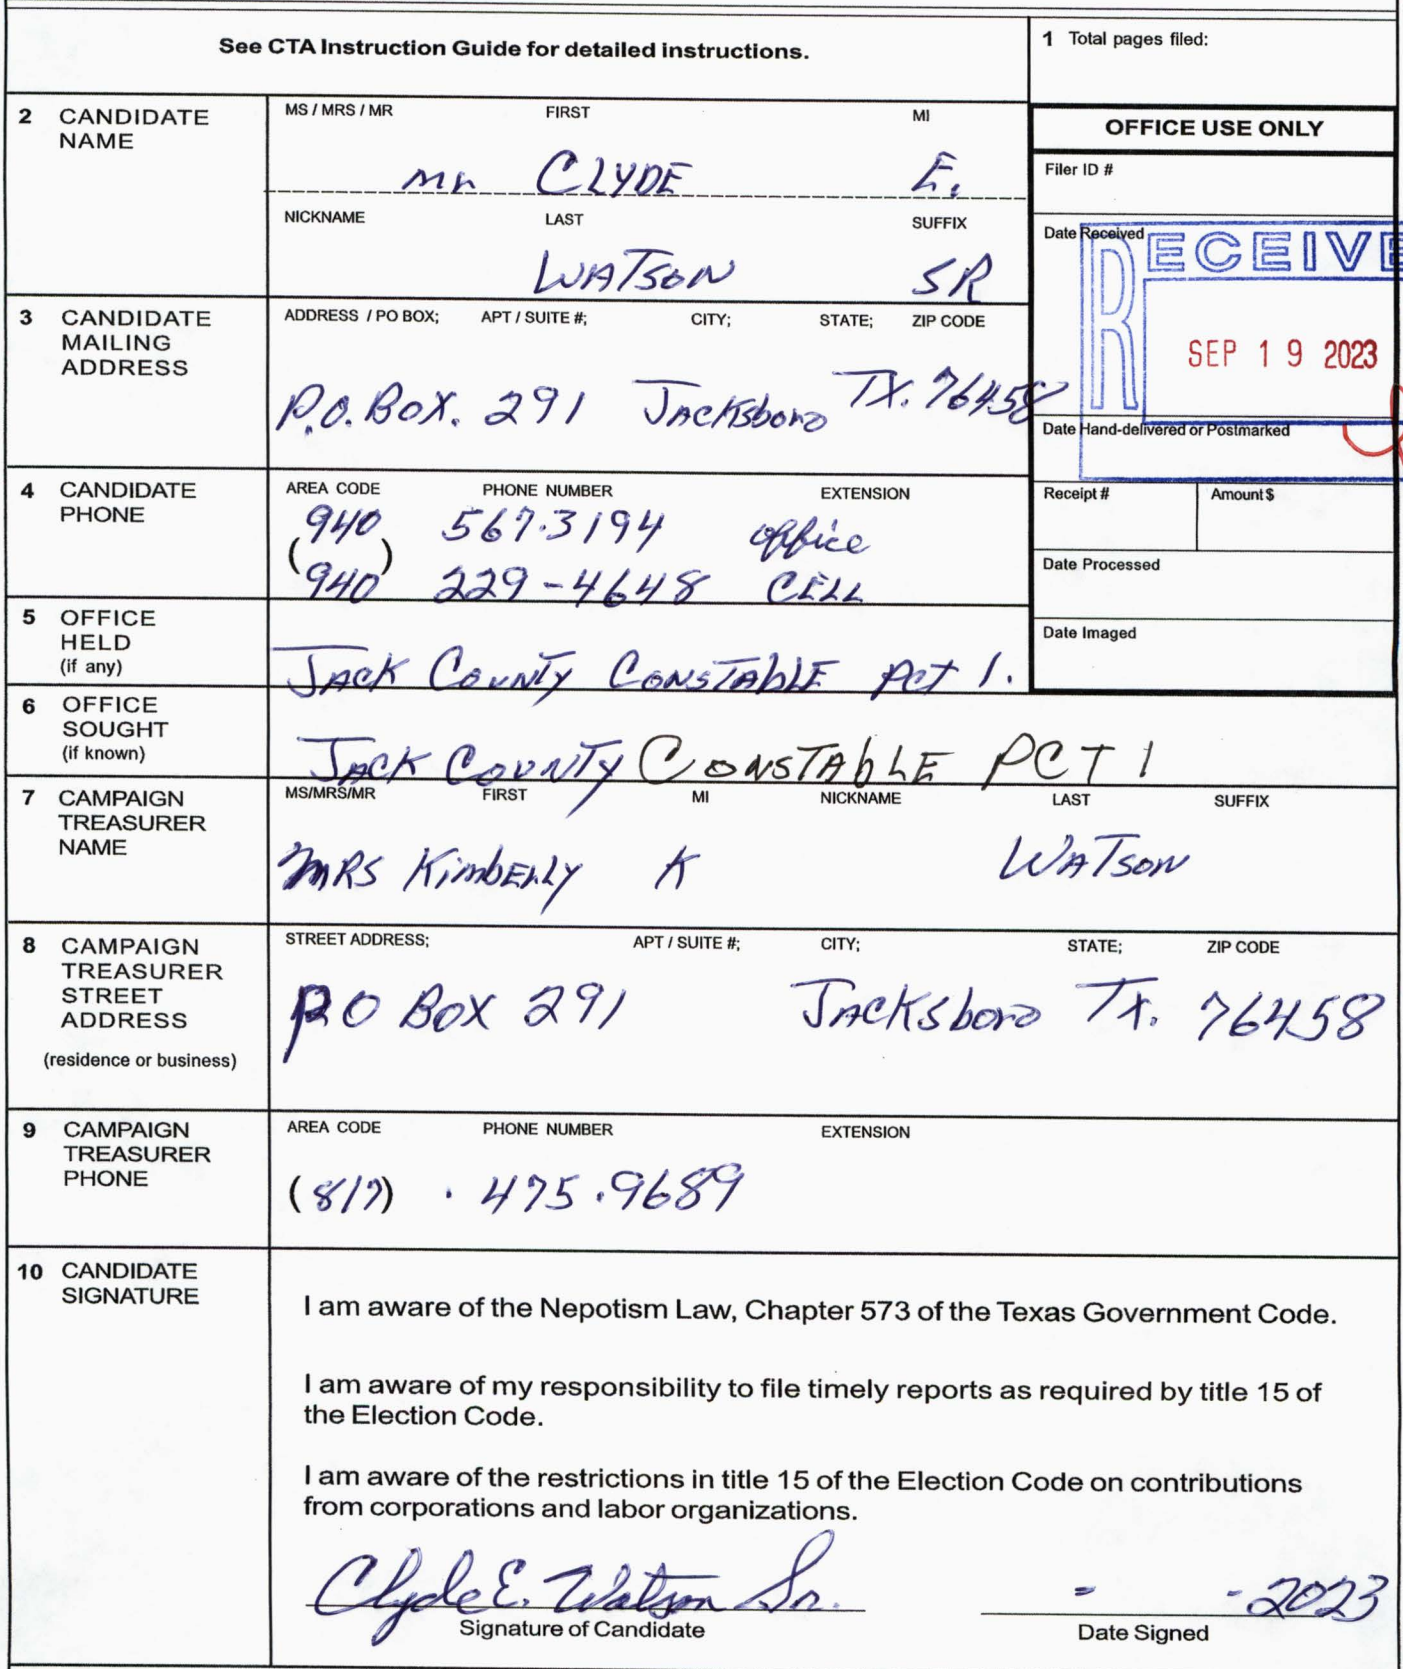 See CTA Instruction Guide for detailed instructions.
1 Total pages filed:
2 CANDIDATE NAME
MS / MRS / MR FIRST MI
mr CLYDE E.
NICKNAME LAST SUFFIX
WATSON SR
OFFICE USE ONLY
Filer ID #
Date Received
RECEIVE
SEP 19 2023
Date Hand-delivered or Postmarked
Receipt # Amount $
Date Processed
Date Imaged
3 CANDIDATE MAILING ADDRESS
ADDRESS / PO BOX; APT / SUITE #; CITY; STATE; ZIP CODE
P.O. BOX. 291 Jacksboro TX. 76458
4 CANDIDATE PHONE
AREA CODE PHONE NUMBER EXTENSION
940 567.3194 office
( )
940 229-4648 CELL
5 OFFICE HELD (if any)
JACK COUNTY CONSTABLE Pct 1.
6 OFFICE SOUGHT (if known)
JACK COUNTY CONSTABLE PCT 1
7 CAMPAIGN TREASURER NAME
MS/MRS/MR FIRST MI NICKNAME LAST SUFFIX
MRS Kimberly K WATSON
8 CAMPAIGN TREASURER STREET ADDRESS
(residence or business)
STREET ADDRESS; APT / SUITE #; CITY; STATE; ZIP CODE
PO BOX 291 Jacksboro Tx. 76458
9 CAMPAIGN TREASURER PHONE
AREA CODE PHONE NUMBER EXTENSION
(817) . 475.9689
10 CANDIDATE SIGNATURE
I am aware of the Nepotism Law, Chapter 573 of the Texas Government Code.
I am aware of my responsibility to file timely reports as required by title 15 of
the Election Code.
I am aware of the restrictions in title 15 of the Election Code on contributions
from corporations and labor organizations.
Clyde E. Watson Sr. - -2023
Signature of Candidate Date Signed